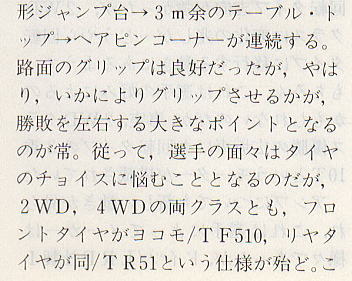 形ジャンプ台→3m余のテーブル・ト
ップ→ヘアピンコーナーが連続する。
路面のグリップは良好だったが，やは
り，いかによりグリップさせるかが，
勝敗を左右する大きなポイントとなる
のが常。従って，選手の面々はタイヤ
のチョイスに悩むこととなるのだが，
2WD，4WDの両クラスとも，フロ
ントタイヤがヨコモ/TF510，リヤタ
イヤが同/TR51という仕様が殆ど。こ